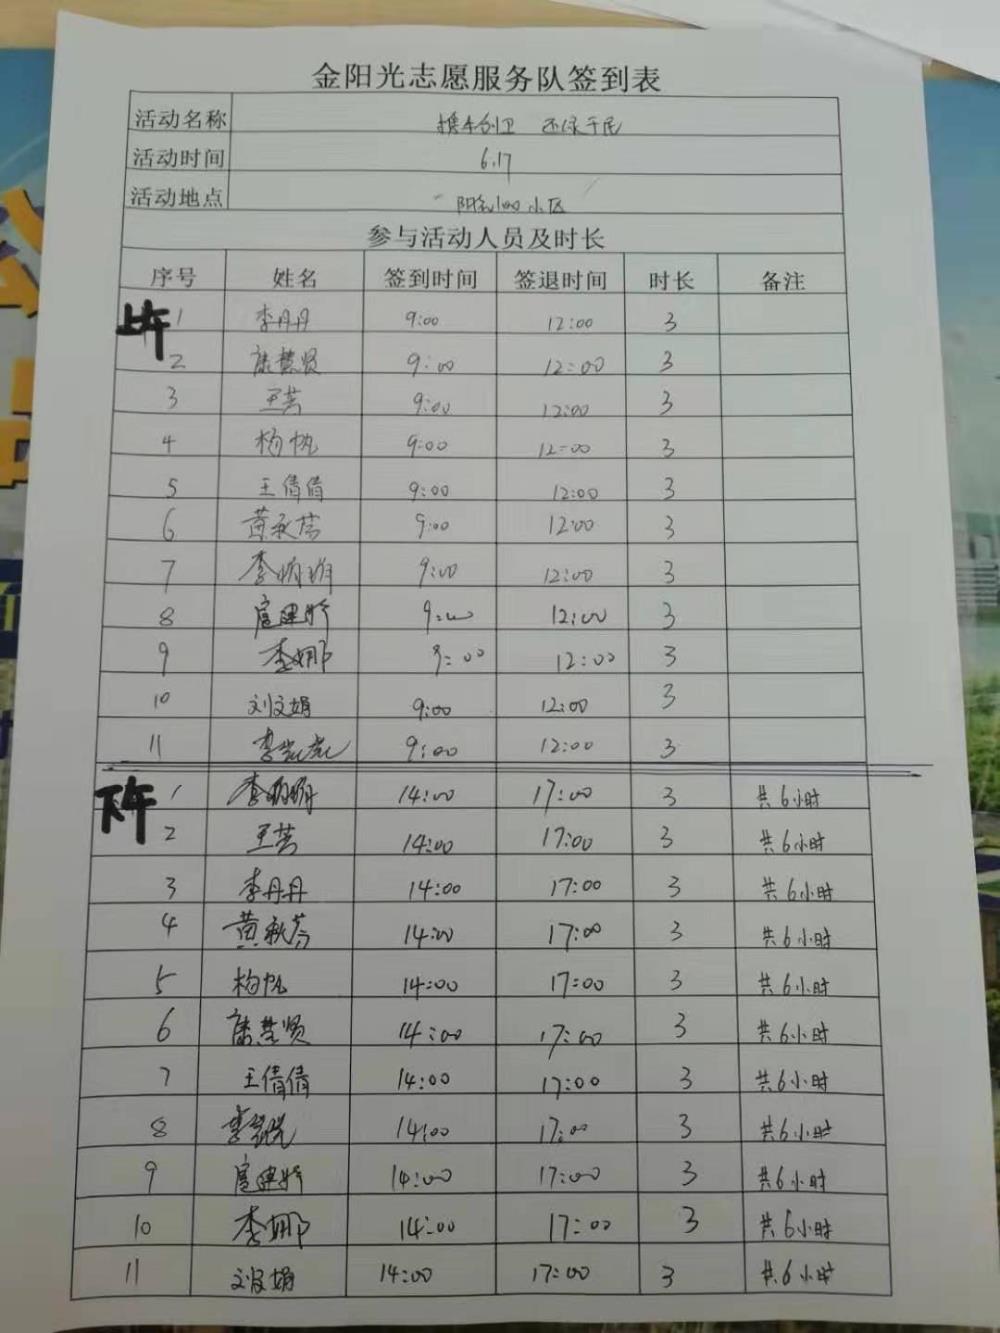 金阳光志愿服务队签到表
活动名称 创卫 还绿于民
活动时间 6.17
活动地点 阳光100小区
参与活动人员及时长
序号 姓名 签到时间 签退时间 时长 备注
上午 1 李丹丹 9:00 12:00 3
2 康慧贤 9:00 12:00 3
3 王芸 9:00 12:00 3
4 杨帆 9:00 12:00 3
5 王倩倩 9:00 12:00 3
6 黄秋芬 9:00 12:00 3
7 李 9:00 12:00 3
8 扈建 9:00 12:00 3
9 李娜 9:00 12:00 3
10 刘文娟 9:00 12:00 3
11 李 9:00 12:00 3
下午 1 李 14:00 17:00 3 共6小时
2 王芸 14:00 17:00 3 共6小时
3 李丹丹 14:00 17:00 3 共6小时
4 黄秋芬 14:00 17:00 3 共6小时
5 杨帆 14:00 17:00 3 共6小时
6 康慧贤 14:00 17:00 3 共6小时
7 王倩倩 14:00 17:00 3 共6小时
8 李 14:00 17:00 3 共6小时
9 扈建 14:00 17:00 3 共6小时
10 李娜 14:00 17:00 3 共6小时
11 刘文娟 14:00 17:00 3 共6小时